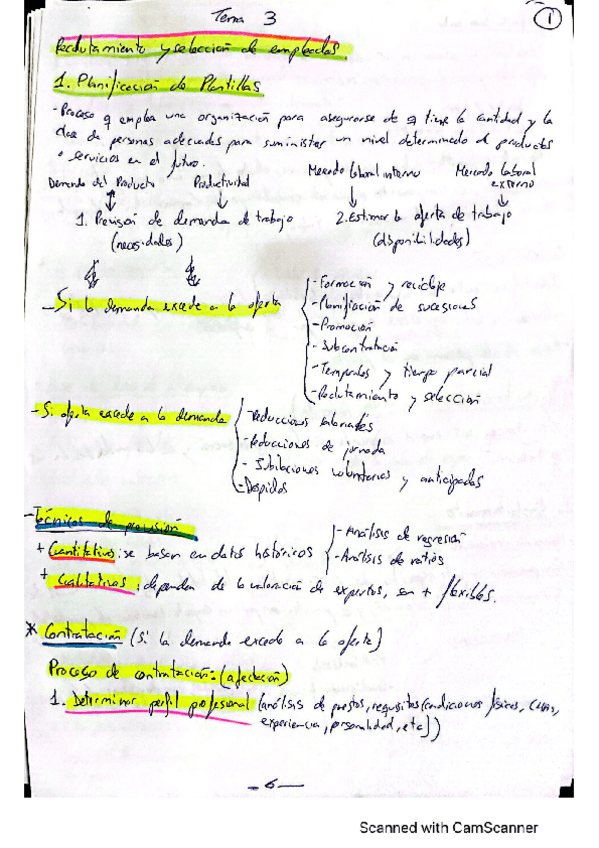 Tema 3
1
Reclutamiento y selección de empleados.
1. Planificación de Plantillas
- Proceso q emplea una organización para asegurarse de q tiene la cantidad y la
clase de personas adecuadas para suministrar un nivel determinado d productos
o servicios en el futuro.
Demanda del Producto Productividad Mercado laboral interno Mercado laboral externo
1. Previsión de demanda de trabajo 2. Estimar la oferta de trabajo
(necesidades) (disponibilidades)
- Si la demanda excede a la oferta
- Formación y reciclaje
- Planificación de sucesiones
- Promoción
- Subcontratación
- Temporales y tiempo parcial
- Reclutamiento y selección
- Si oferta excede a la demanda
- Reducciones salariales
- Reducciones de jornada
- Jubilaciones voluntarias y anticipadas
- Despidos
- Técnicas de previsión
+ Cuantitativos: se basan en datos históricos
- Análisis de regresión
- Análisis de ratios
+ Cualitativos: dependen de la valoración de expertos, son + flexibles.
* Contratación (Si la demanda excede a la oferta)
Proceso de contratación: (afectación)
1. Determinar perfil profesional (análisis de puestos, requisitos (condiciones físicas,
experiencia, personalidad, etc))
- 6 -
Scanned with CamScanner